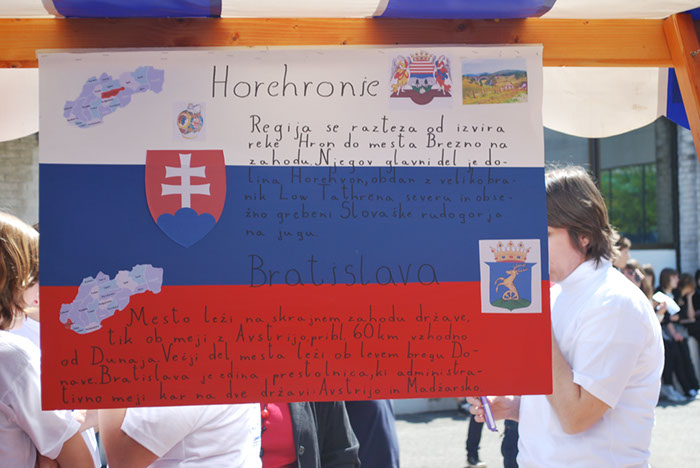 Horehronie
Regija se razteza od izvira
reke Hron do mesta Brezno na
zahodu. Njegov glavni del je do-
lina Horehron, obdan z veliko bra-
nik Low Tathrena severu in obse-
žno grebeni Slovaške rudogorja
na jugu.
Bratislava
Mesto leži na skrajnem zahodu države,
tik ob meji z Avstrijo, pribl. 60 km vzhodno
od Dunaja. Večji del mesta leži ob levem bregu Do-
nave. Bratislava je edina prestolnica, ki administra-
tivno meji kar na dve državi: Avstrijo in Madžarsko.